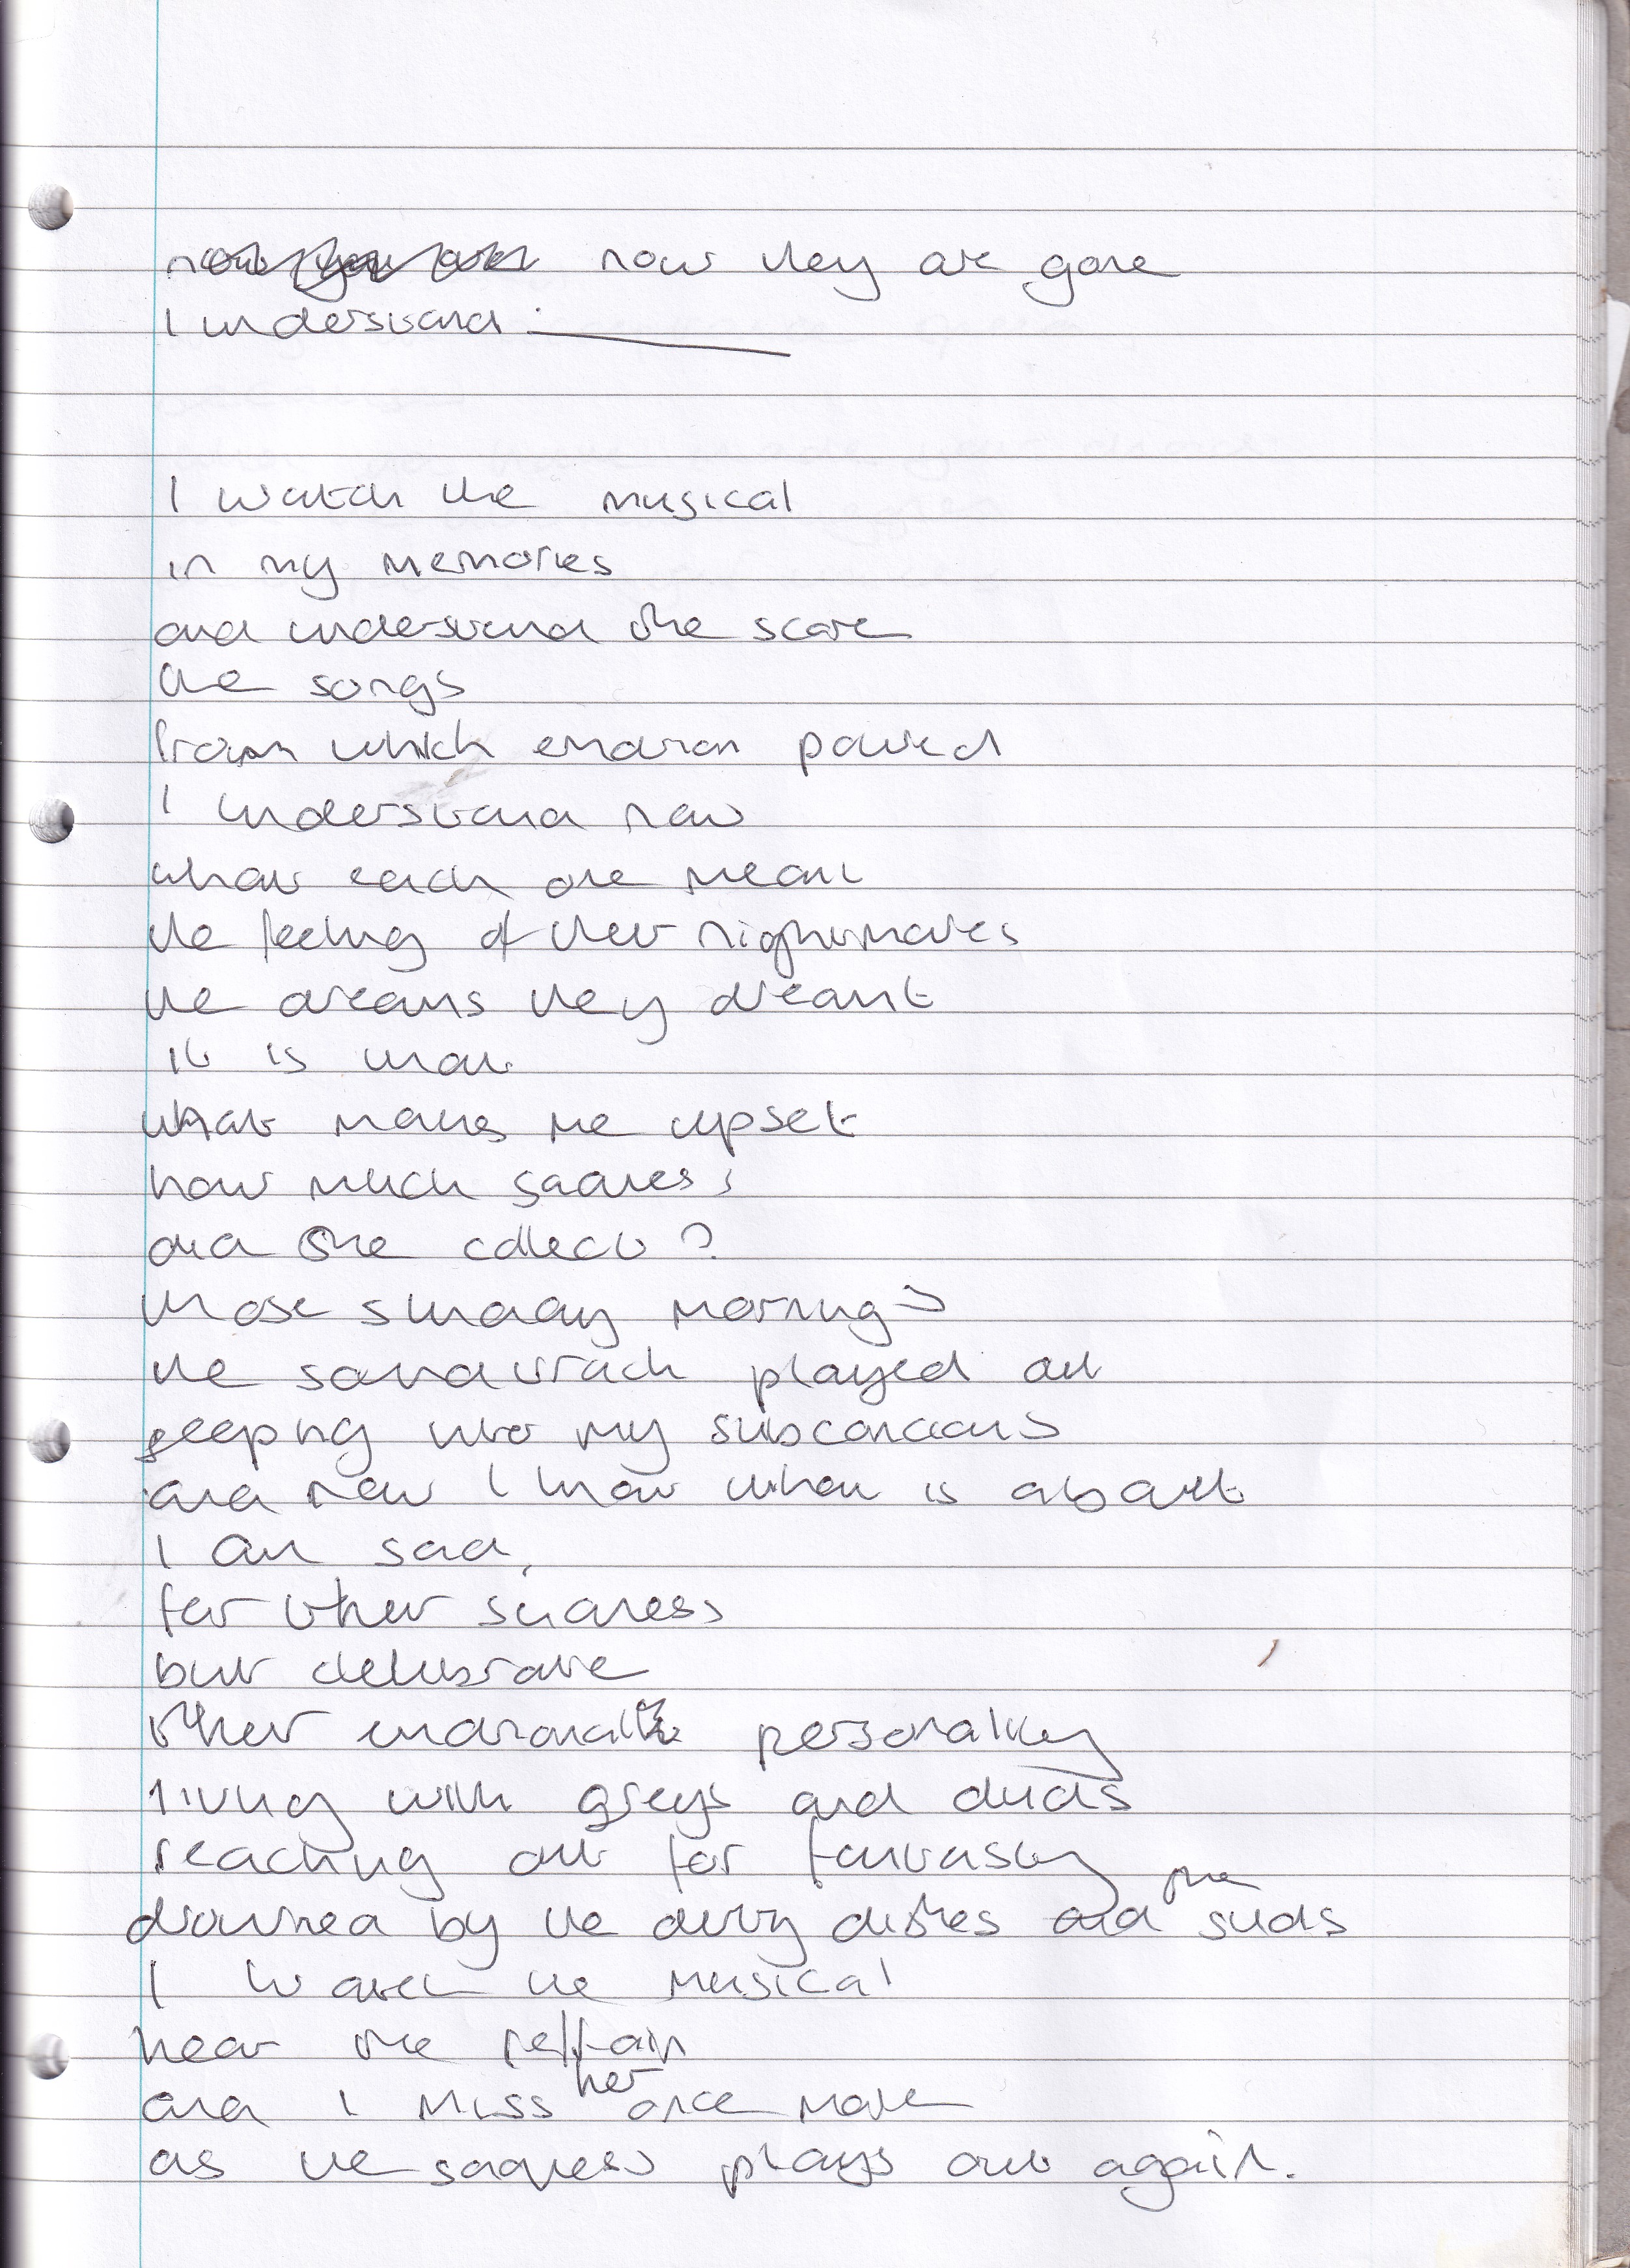 now they are gone
I understand.
I watch the musical
in my memories
and understand the score
the songs
from which emotion poured
I understand now
what each one meant
the feeling of their nightmares
the dreams they dreamt
it is that
what makes me upset
how much sadness
did she collect?
those sunday mornings
the soundtrack played out
seeping into my subconcious
and now I know what is about
I am sad,
for their sadness
but celebrate
their personality
living with greys and duds
reaching out for fantasy
drowned by the dirty dishes the suds
I watch the musical
hear the refrain
and I miss her once more
as the sadness plays out again.